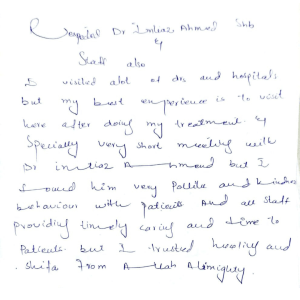 Respected Dr Imtiaz Ahmed Shb
&
Staff also
I visited alot of drs and hospitals
but my best experience is to visit
here after doing my treatment &
Specially very short meeting with
Dr imtiaz Ahmead but I
Found him very Pollite and kindness
behaviour with patients And all Staff
providing timely caring and time to
Patients. but I trusted healing and
shifa From Allah Almighty.